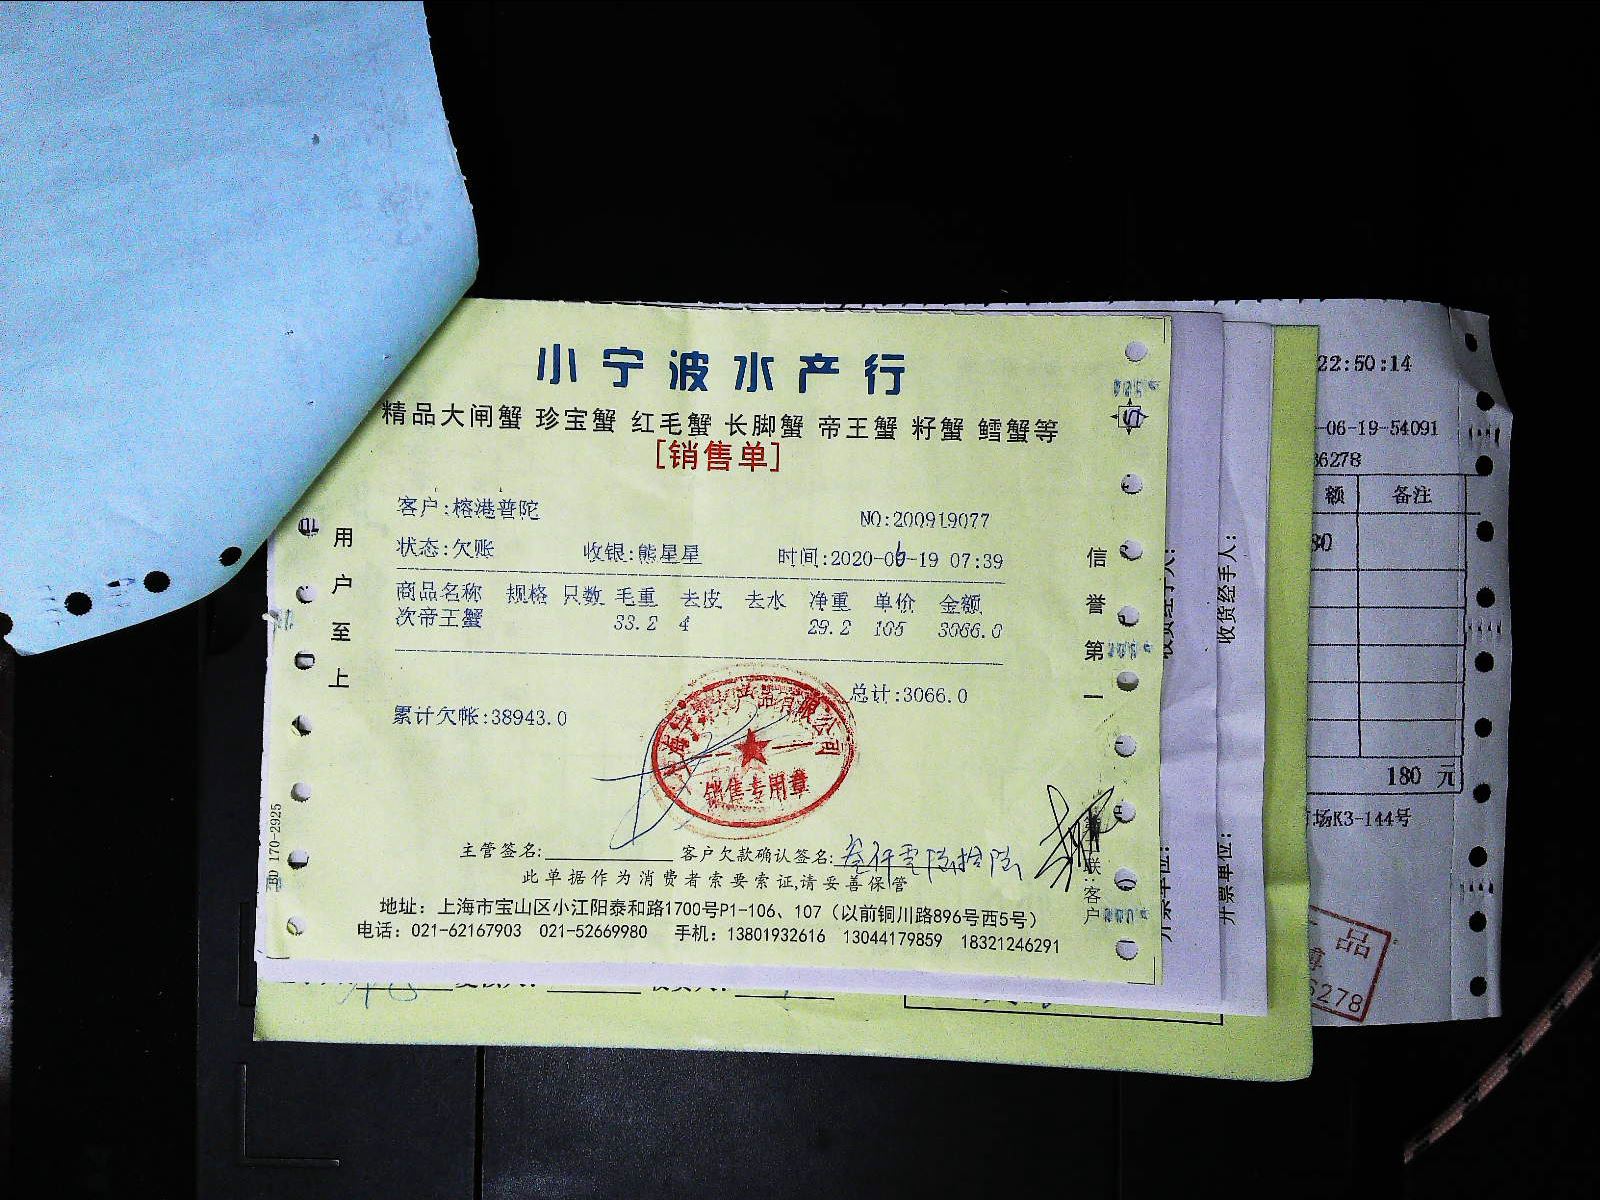 小宁波水产行
精品大闸蟹 珍宝蟹 红毛蟹 长脚蟹 帝王蟹 籽蟹 鳕蟹等
[销售单]
客户:榕港普陀
NO:200919077
状态:欠账 收银:熊星星 时间:2020-06-19 07:39
商品名称 规格 只数 毛重 去皮 去水 净重 单价 金额
次帝王蟹 33.2 4 29.2 105 3066.0
总计:3066.0
累计欠帐:38943.0
销售专用章
主管签名: 客户欠款确认签名: 叁仟零陆拾陆
此单据作为消费者索要索证,请妥善保管
地址：上海市宝山区小江阳泰和路1700号P1-106、107（以前铜川路896号西5号）
电话：021-62167903 021-52669980 手机：13801932616 13044179859 18321246291
用户至上
信誉第一
170-2925
收货经手人:
开票单位:
22:50:14
-06-19-54091
36278
额 备注
80
180 元
场K3-144号
品
6278